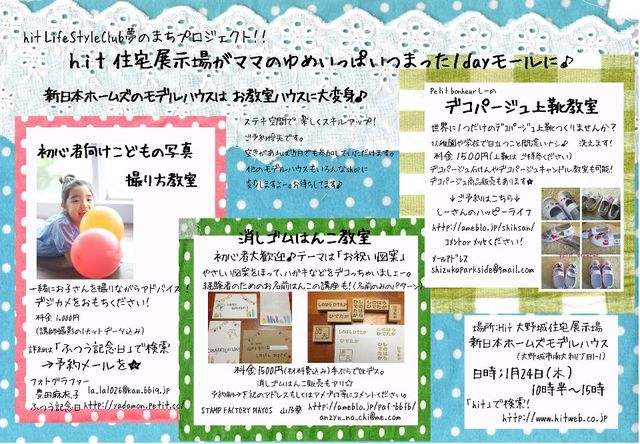 hit LifeStyleClub夢のまちプロジェクト!!
hit 住宅展示場がママのゆめいっぱいつまった1dayモールに♪
新日本ホームズのモデルハウスは お教室ハウスに大変身♪
ステキ空間で 楽しくスキルアップ!
ご予約優先です。
空きがあれば当日でも参加していただけます。
他のモデルハウスもいろんなshopに
変身しますよ〜。お待ちしてます♪
初心者向けこどもの写真
撮り方教室
一緒にお子さんを撮りながらアドバイス!
デジカメをおもちください!
料金 1,000円
(講師撮影の1カットデータ込み)
詳細は「ふつう記念日」で検索
→予約メールを★
フォトグラファー
豊田麻衣子
ふつう記念日 http://yadamon.petit.cc/
消しゴムはんこ教室
初心者大歓迎♪テーマは「お祝い図案」
やさしい図案をほって、ハガキなどをデコっちゃいましょー。
経験者のためのお名前はんこの講座も!(名前のみのパターン)
料金1500円(材料費込み)手ぶらで性デス。
消しゴムはんこ販売もアリ☆
予約時→下記のアドレスもしくはアメブロ等にコメントください。
STAMP FACTORY MAYOS
http://ameblo.jp/paf-bbfb/
anzyu_no_chi@me.com
Petit bonheurしーの
デコパージュ上靴教室
世界に1つだけのデコパージュ上靴つくりませんか?
幼稚園や学校で目立つこと間違いナシ♪ 洗えます!
料金1500円(上靴は ご持参ください)
デコパージュ石けんやデコパージュキャンドル教室も可能!
デコパージュ商品販売もあります☆
↓ご予約はこちら↓
しーさんのハッピーライフ
http://ameblo.jp/shihsan/
コメントor メッセください!
メールアドレス
shizukaparkside@gmail.com
場所:Hit 大野城住宅展示場
新日本ホームズモデルハウス
(大野城市南大利1丁目1-1)
日時:1月24日(木)
10時半〜15時
「hit」で検索!
http://www.hitweb.co.jp